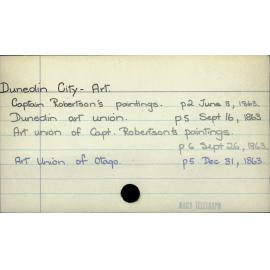 Dunedin City - Art.
Captain Robertson's paintings. p2 June 8, 1863.
Dunedin art union. p5 Sept 16, 1863
Art union of Capt. Robertson's paintings.
p6 Sept 26, 1863.
Art Union of Otago. p5 Dec 31, 1863.
DAILY TELEGRAPH